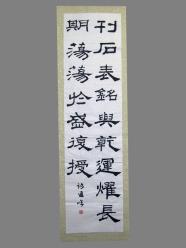 刊石表銘與乾運燿長
期蕩蕩於盛復授